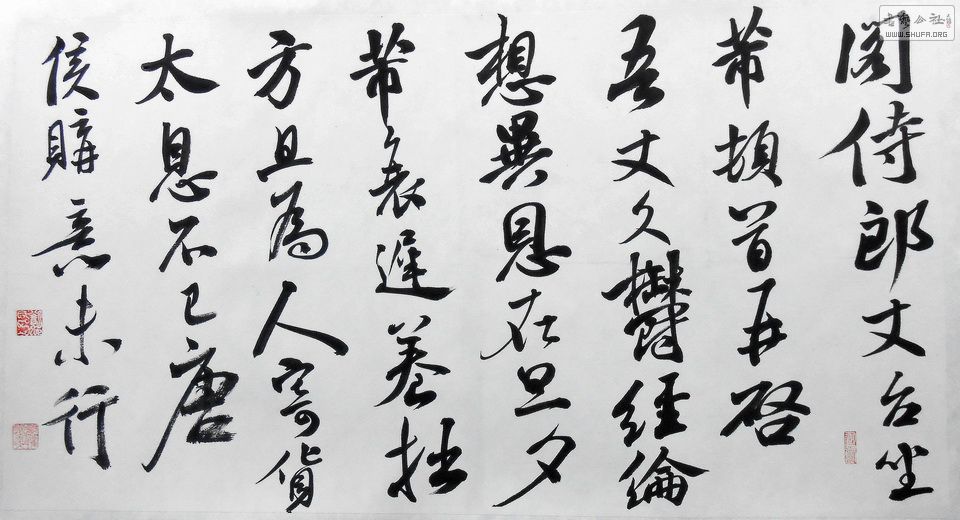 閣侍郎丈台坐
芾頓首再啓
吾丈久鬱經綸
想異恩在旦夕
芾衰遲養拙
方且為人寄貨
太息不已唐
侯購意未行
书艺公社
WWW.SHUFA.ORG